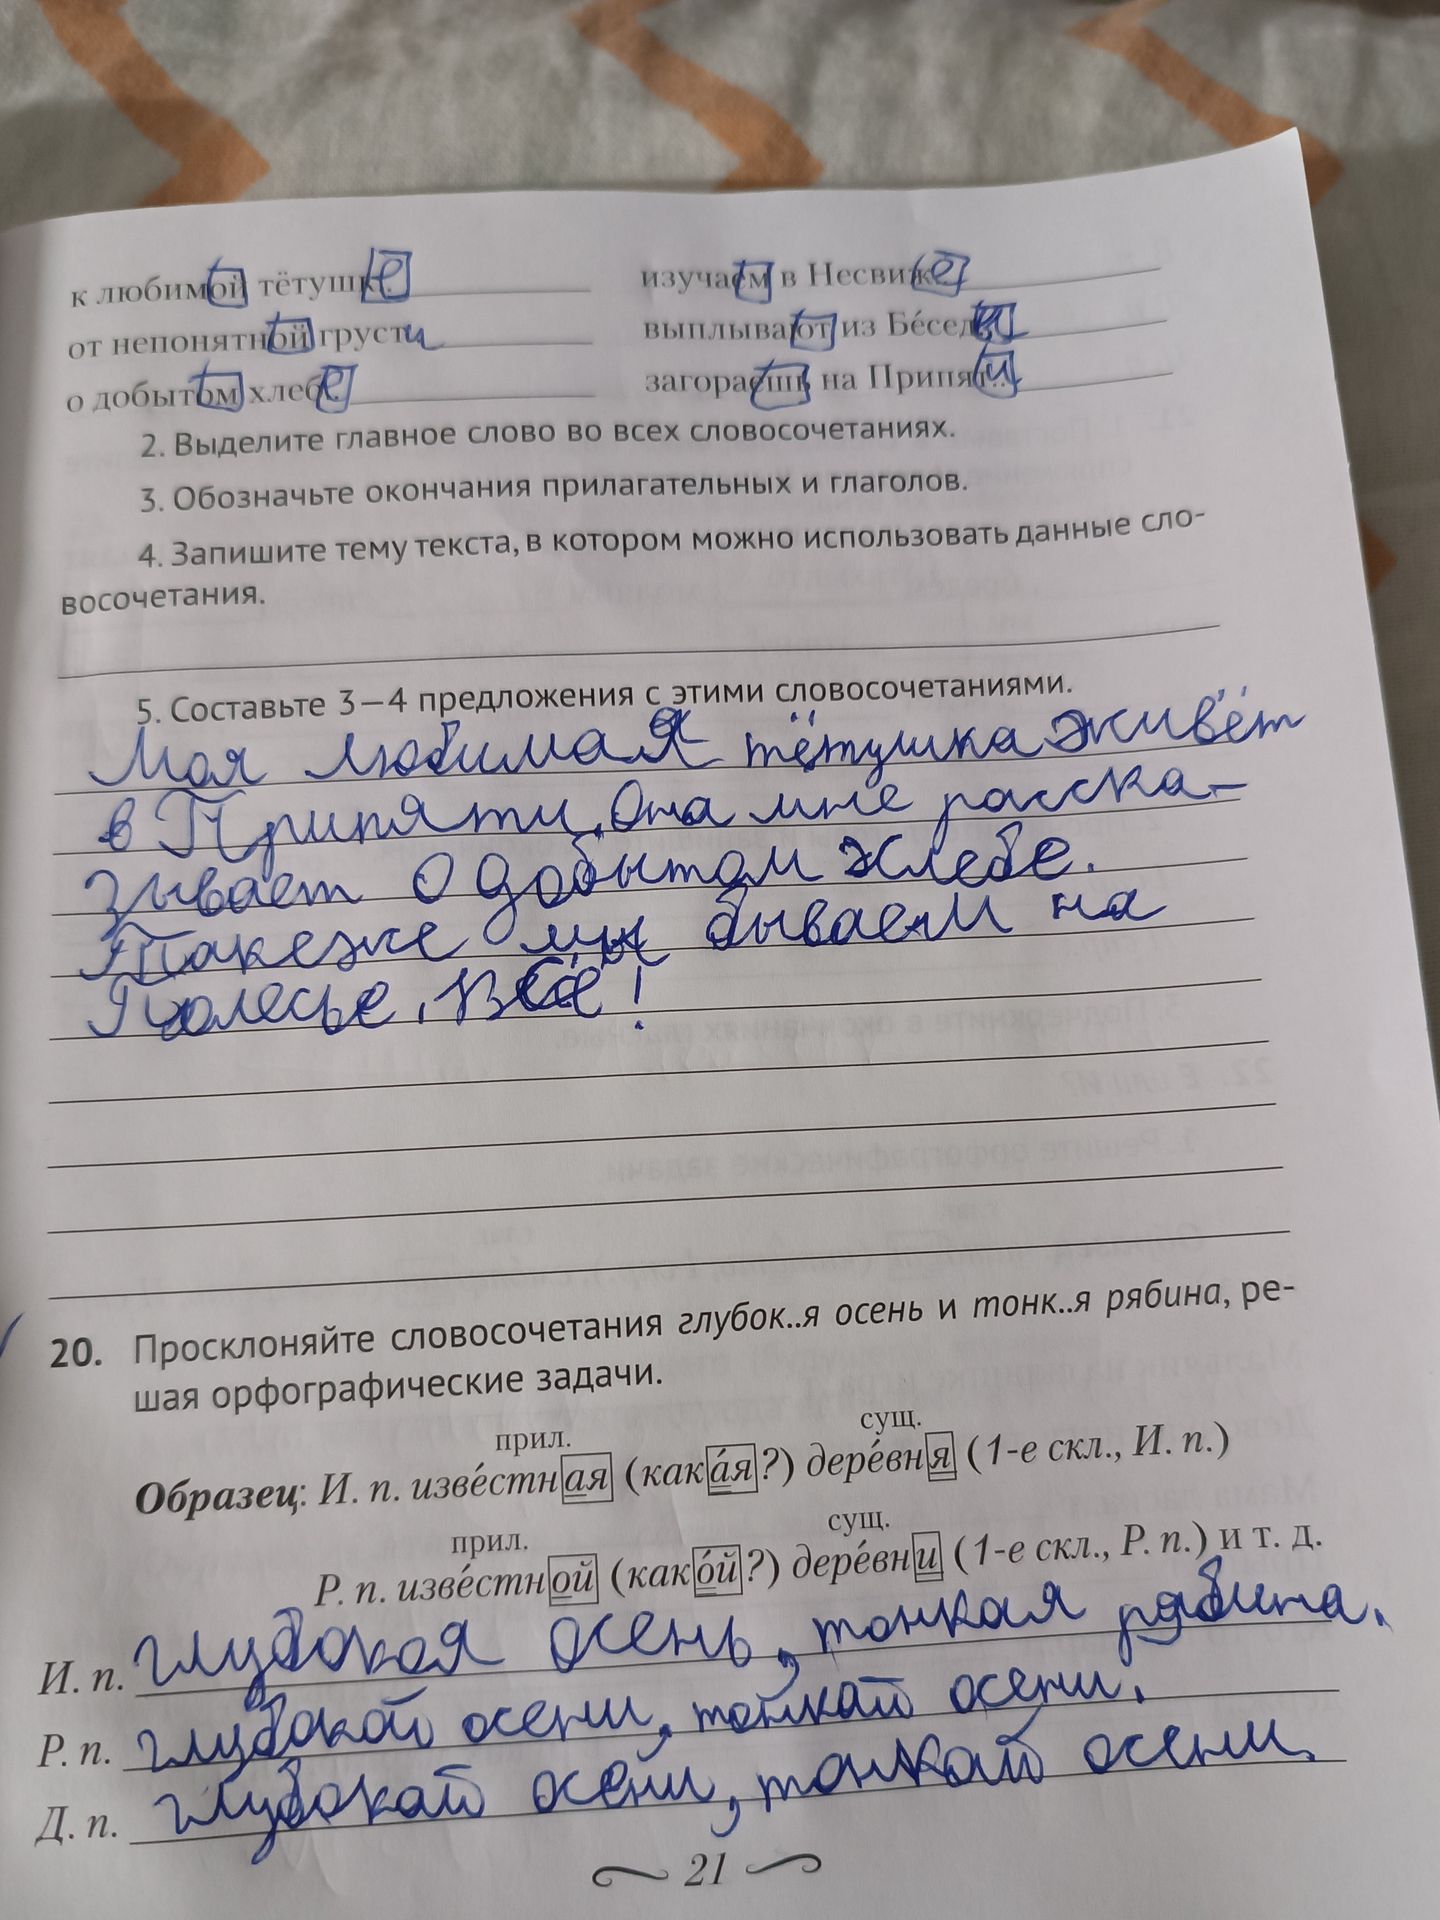 к любимой тётушке
изучаем в Несвиже
от непонятной грусти
выплывают из Бе́седи
о добытом хлебе
загораешь на Припяти
2. Выделите главное слово во всех словосочетаниях.
3. Обозначьте окончания прилагательных и глаголов.
4. Запишите тему текста, в котором можно использовать данные сло-
восочетания.
5. Составьте 3—4 предложения с этими словосочетаниями.
Моя любимая тётушка живёт
в Припяти. Она мне расска-
зывает о добытом хлебе.
Такеже мы бываем на
Полесье. Всё!
20. Просклоняйте словосочетания глубок..я осень и тонк..я рябина, ре-
шая орфографические задачи.
прил. сущ.
Образец: И. п. изве́стная (кака́я?) дере́вня (1-е скл., И. п.)
прил. сущ.
Р. п. изве́стной (како́й?) дере́вни (1-е скл., Р. п.) и т. д.
И. п. глубокая осень, тонкая рябина.
Р. п. глубокой осени, тонкай осени.
Д. п. глубокай осени, тонкай осени.
21